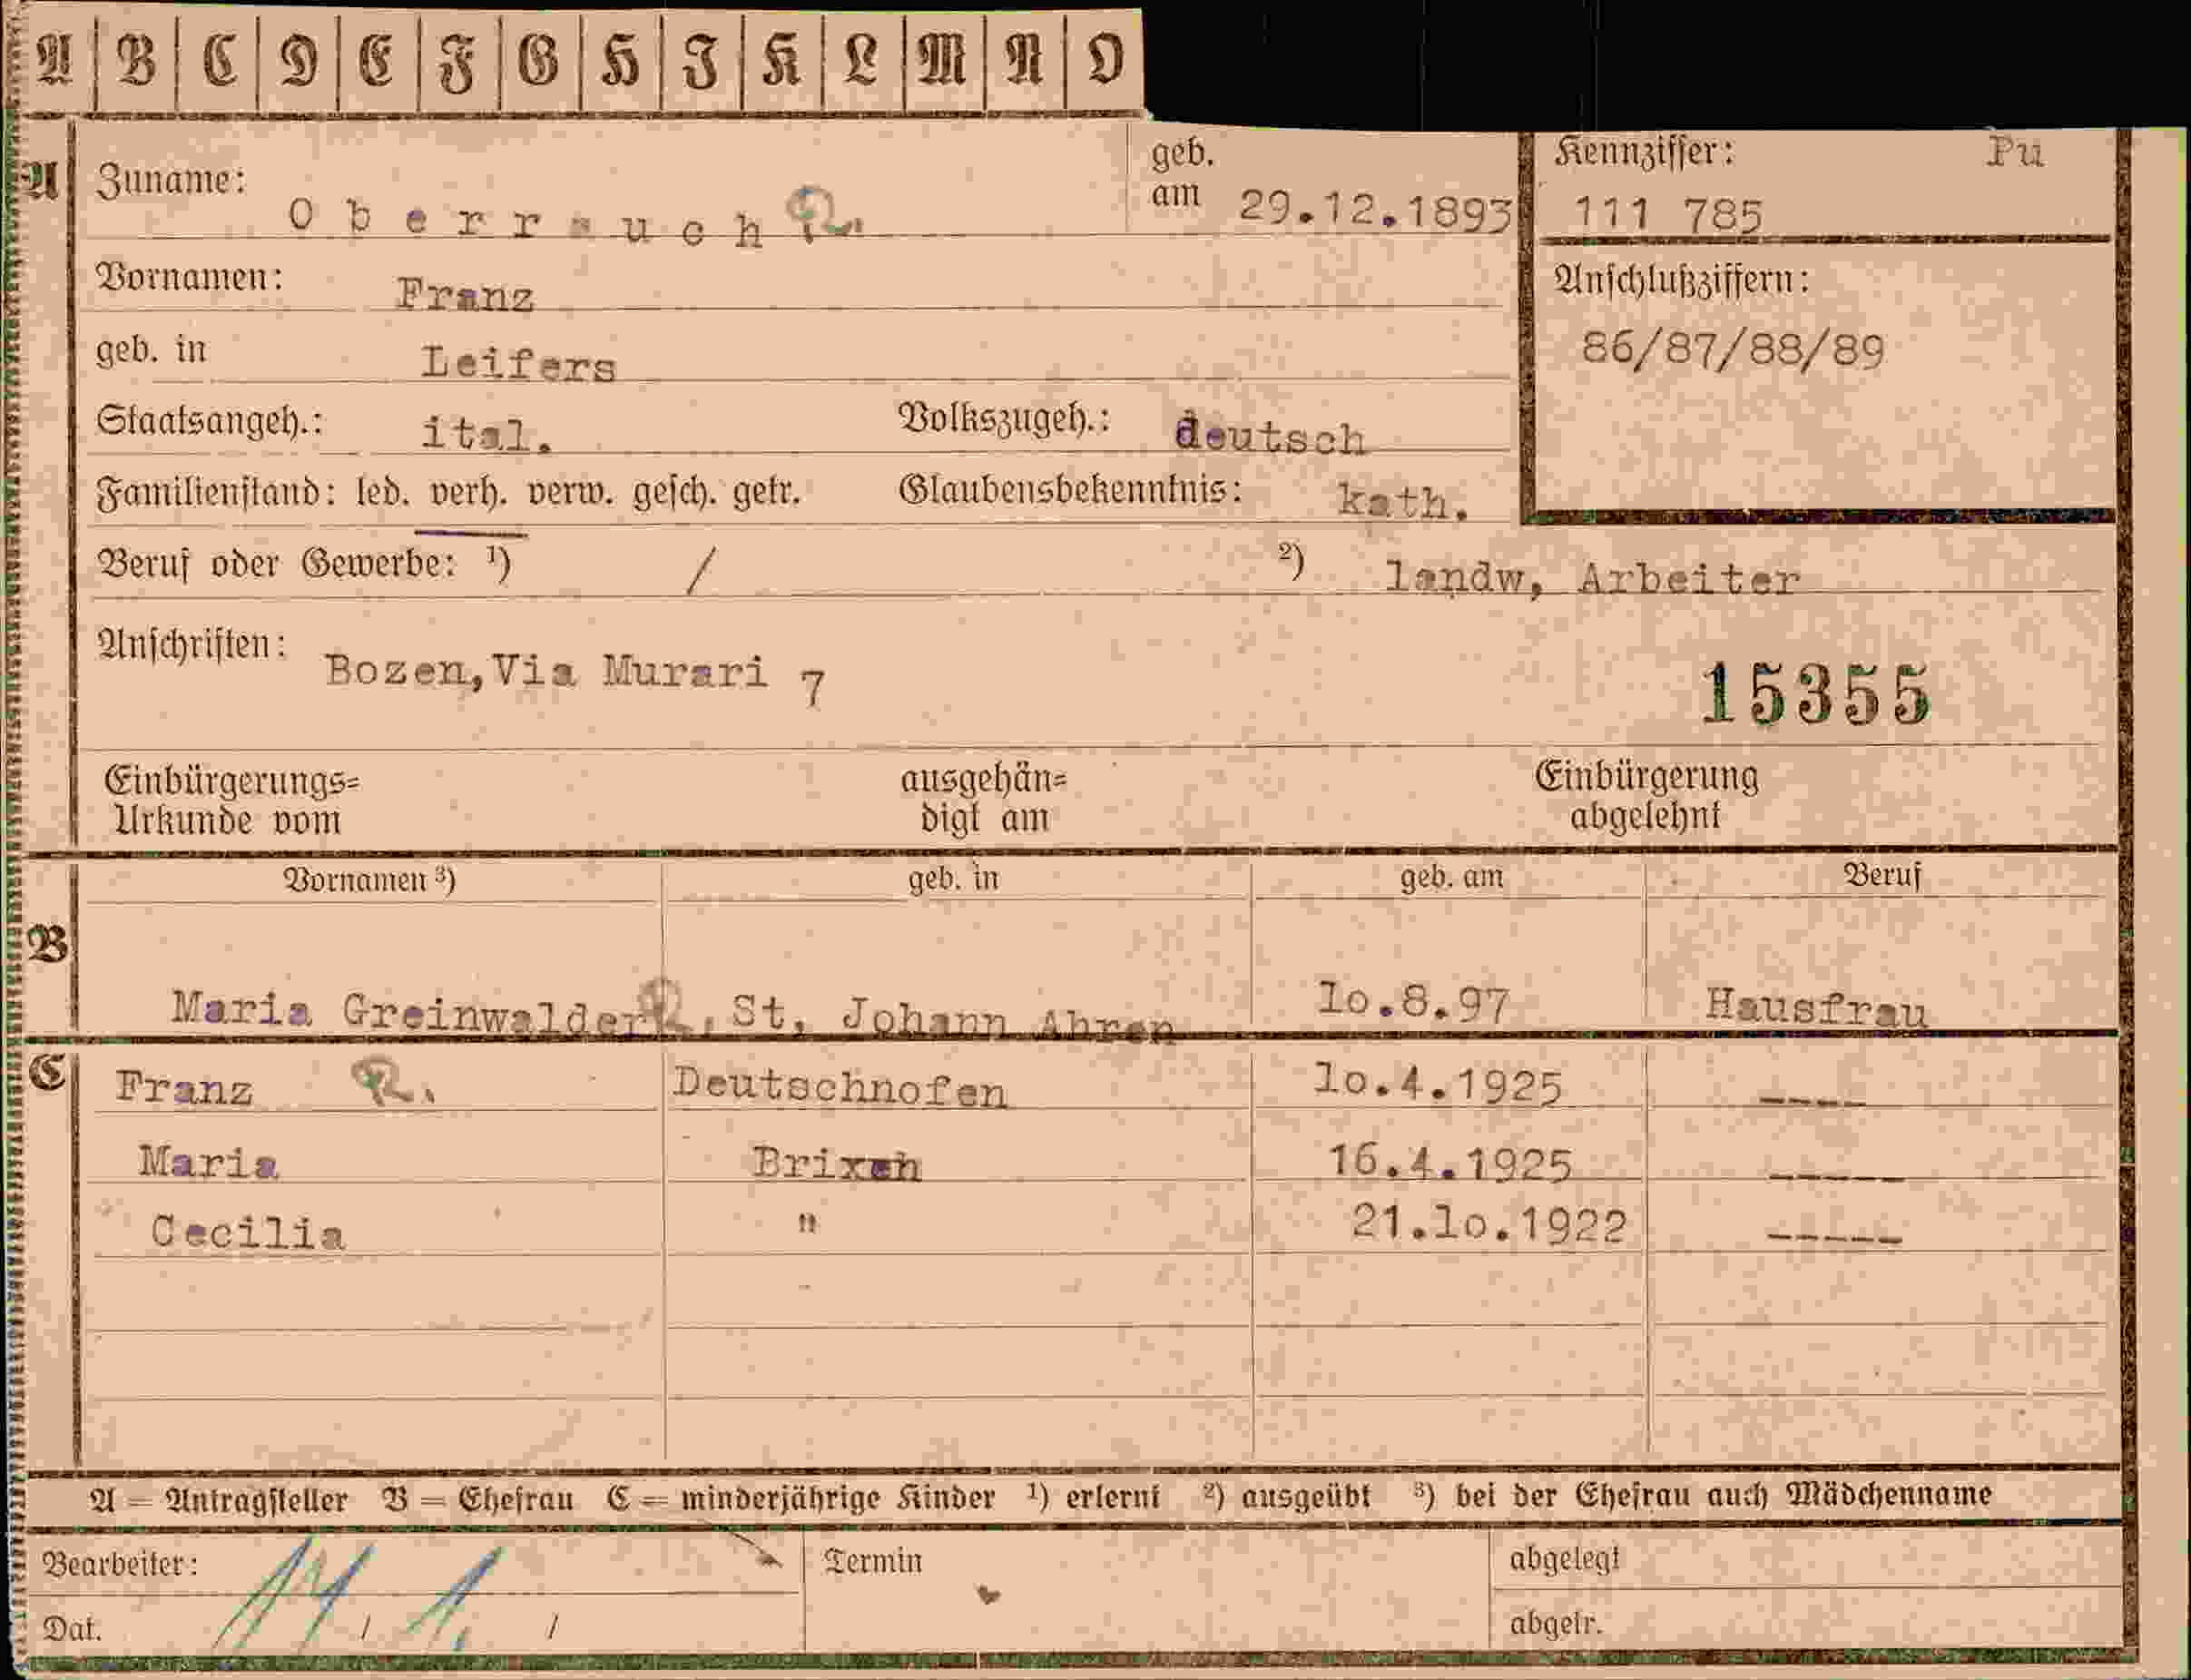 A B C D E F G H I K L M N O
Kennziffer: Pu
A Zuname: Oberrauch R. geb. am 29.12.1893 111 785
Vornamen: Franz Anschlußziffern:
geb. in Leifers 86/87/88/89
Staatsangeh.: ital. Volkszugeh.: deutsch
Familienstand: led. verh. verw. gesch. getr. Glaubensbekenntnis: kath.
Beruf oder Gewerbe: ¹) / ²) landw, Arbeiter
Anschriften: Bozen,Via Murari 7 15355
Einbürgerungs= ausgehän= Einbürgerung
Urkunde vom digt am abgelehnt
Vornamen ³) geb. in geb. am Beruf
B
Maria Greinwalder R. St, Johann Ahren 1o.8.97 Hausfrau
C Franz R. Deutschnofen 1o.4.1925 ----
Maria Brixen 16.4.1925 -----
Cecilia " 21.1o.1922 -----
A = Antragsteller B = Ehefrau C = minderjährige Kinder ¹) erlernt ²) ausgeübt ³) bei der Ehefrau auch Mädchenname
Bearbeiter: Termin abgelegt
Dat. / / abgetr.